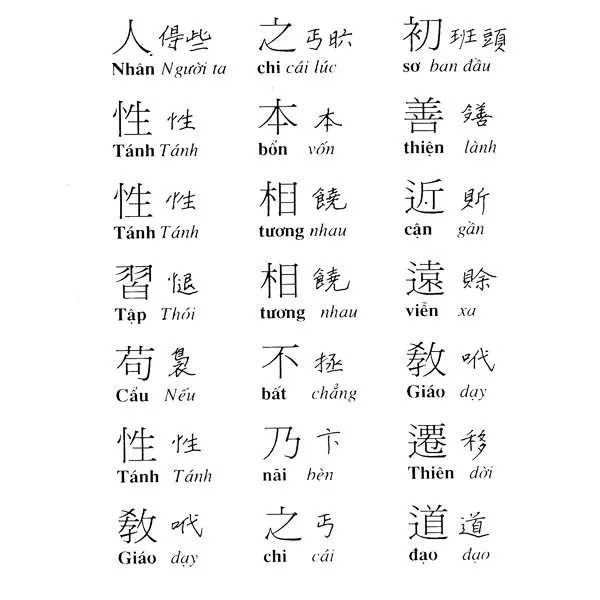 人 得些 之 丐𣅶 初 班頭
Nhân Người ta chi cái lúc sơ ban đầu
性 性 本 本 善 𫅜
Tánh Tánh bổn vốn thiện lành
性 性 相 饒 近 𧵆
Tánh Tánh tương nhau cận gần
習 退 相 饒 遠 賒
Tập Thói tương nhau viễn xa
苟 裊 不 拯 教 𠰺
Cẩu Nếu bất chẳng Giáo dạy
性 性 乃 卞 遷 移
Tánh Tánh nãi bèn Thiên dời
教 𠰺 之 丐 道 道
Giáo dạy chi cái đạo đạo